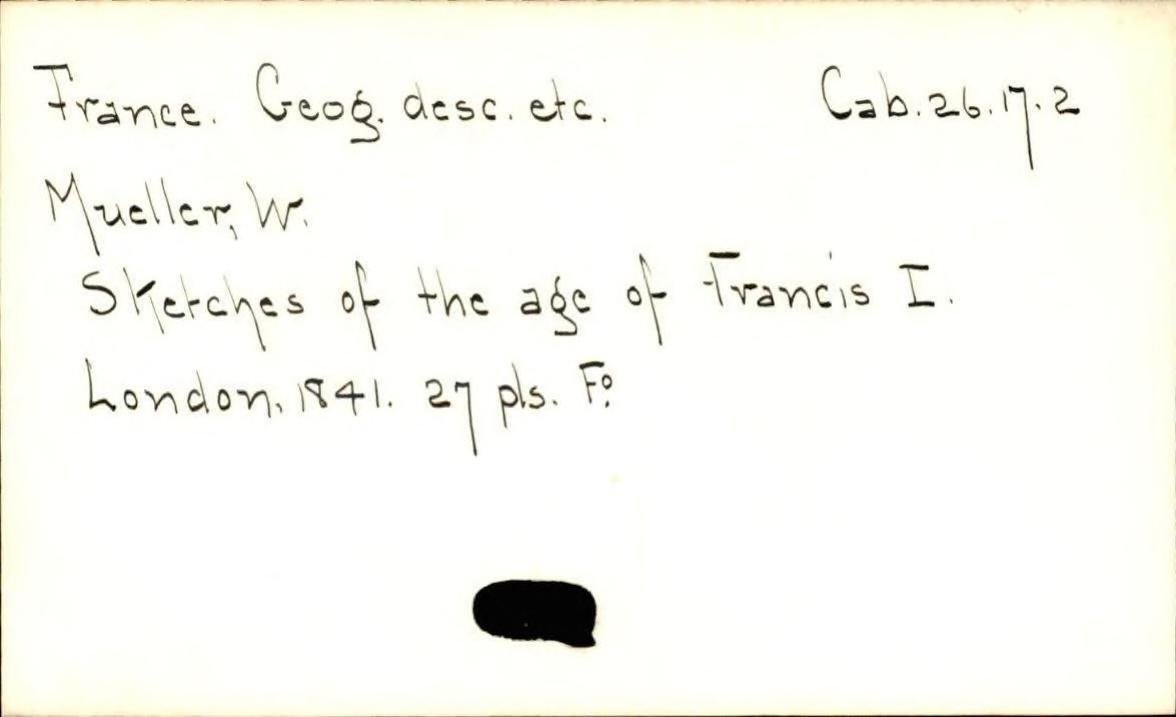 France. Geog. desc. etc. Cab.26.17.2
Mueller, W.
Sketches of the age of Francis I.
London, 1841. 27 pls. Fº.